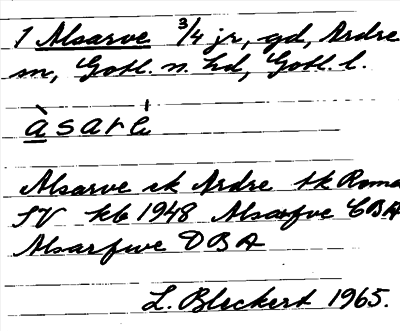 1 Alsarve 3/4 jr, gd, Ardre
sn, Gotl. n. hd, Gotl. l.
àsarv
Alsarve ek Ardre tk Roma
SV kb 1948 Alsarfve CBA
Alsarfwe DBA
L. Bleckert 1965.